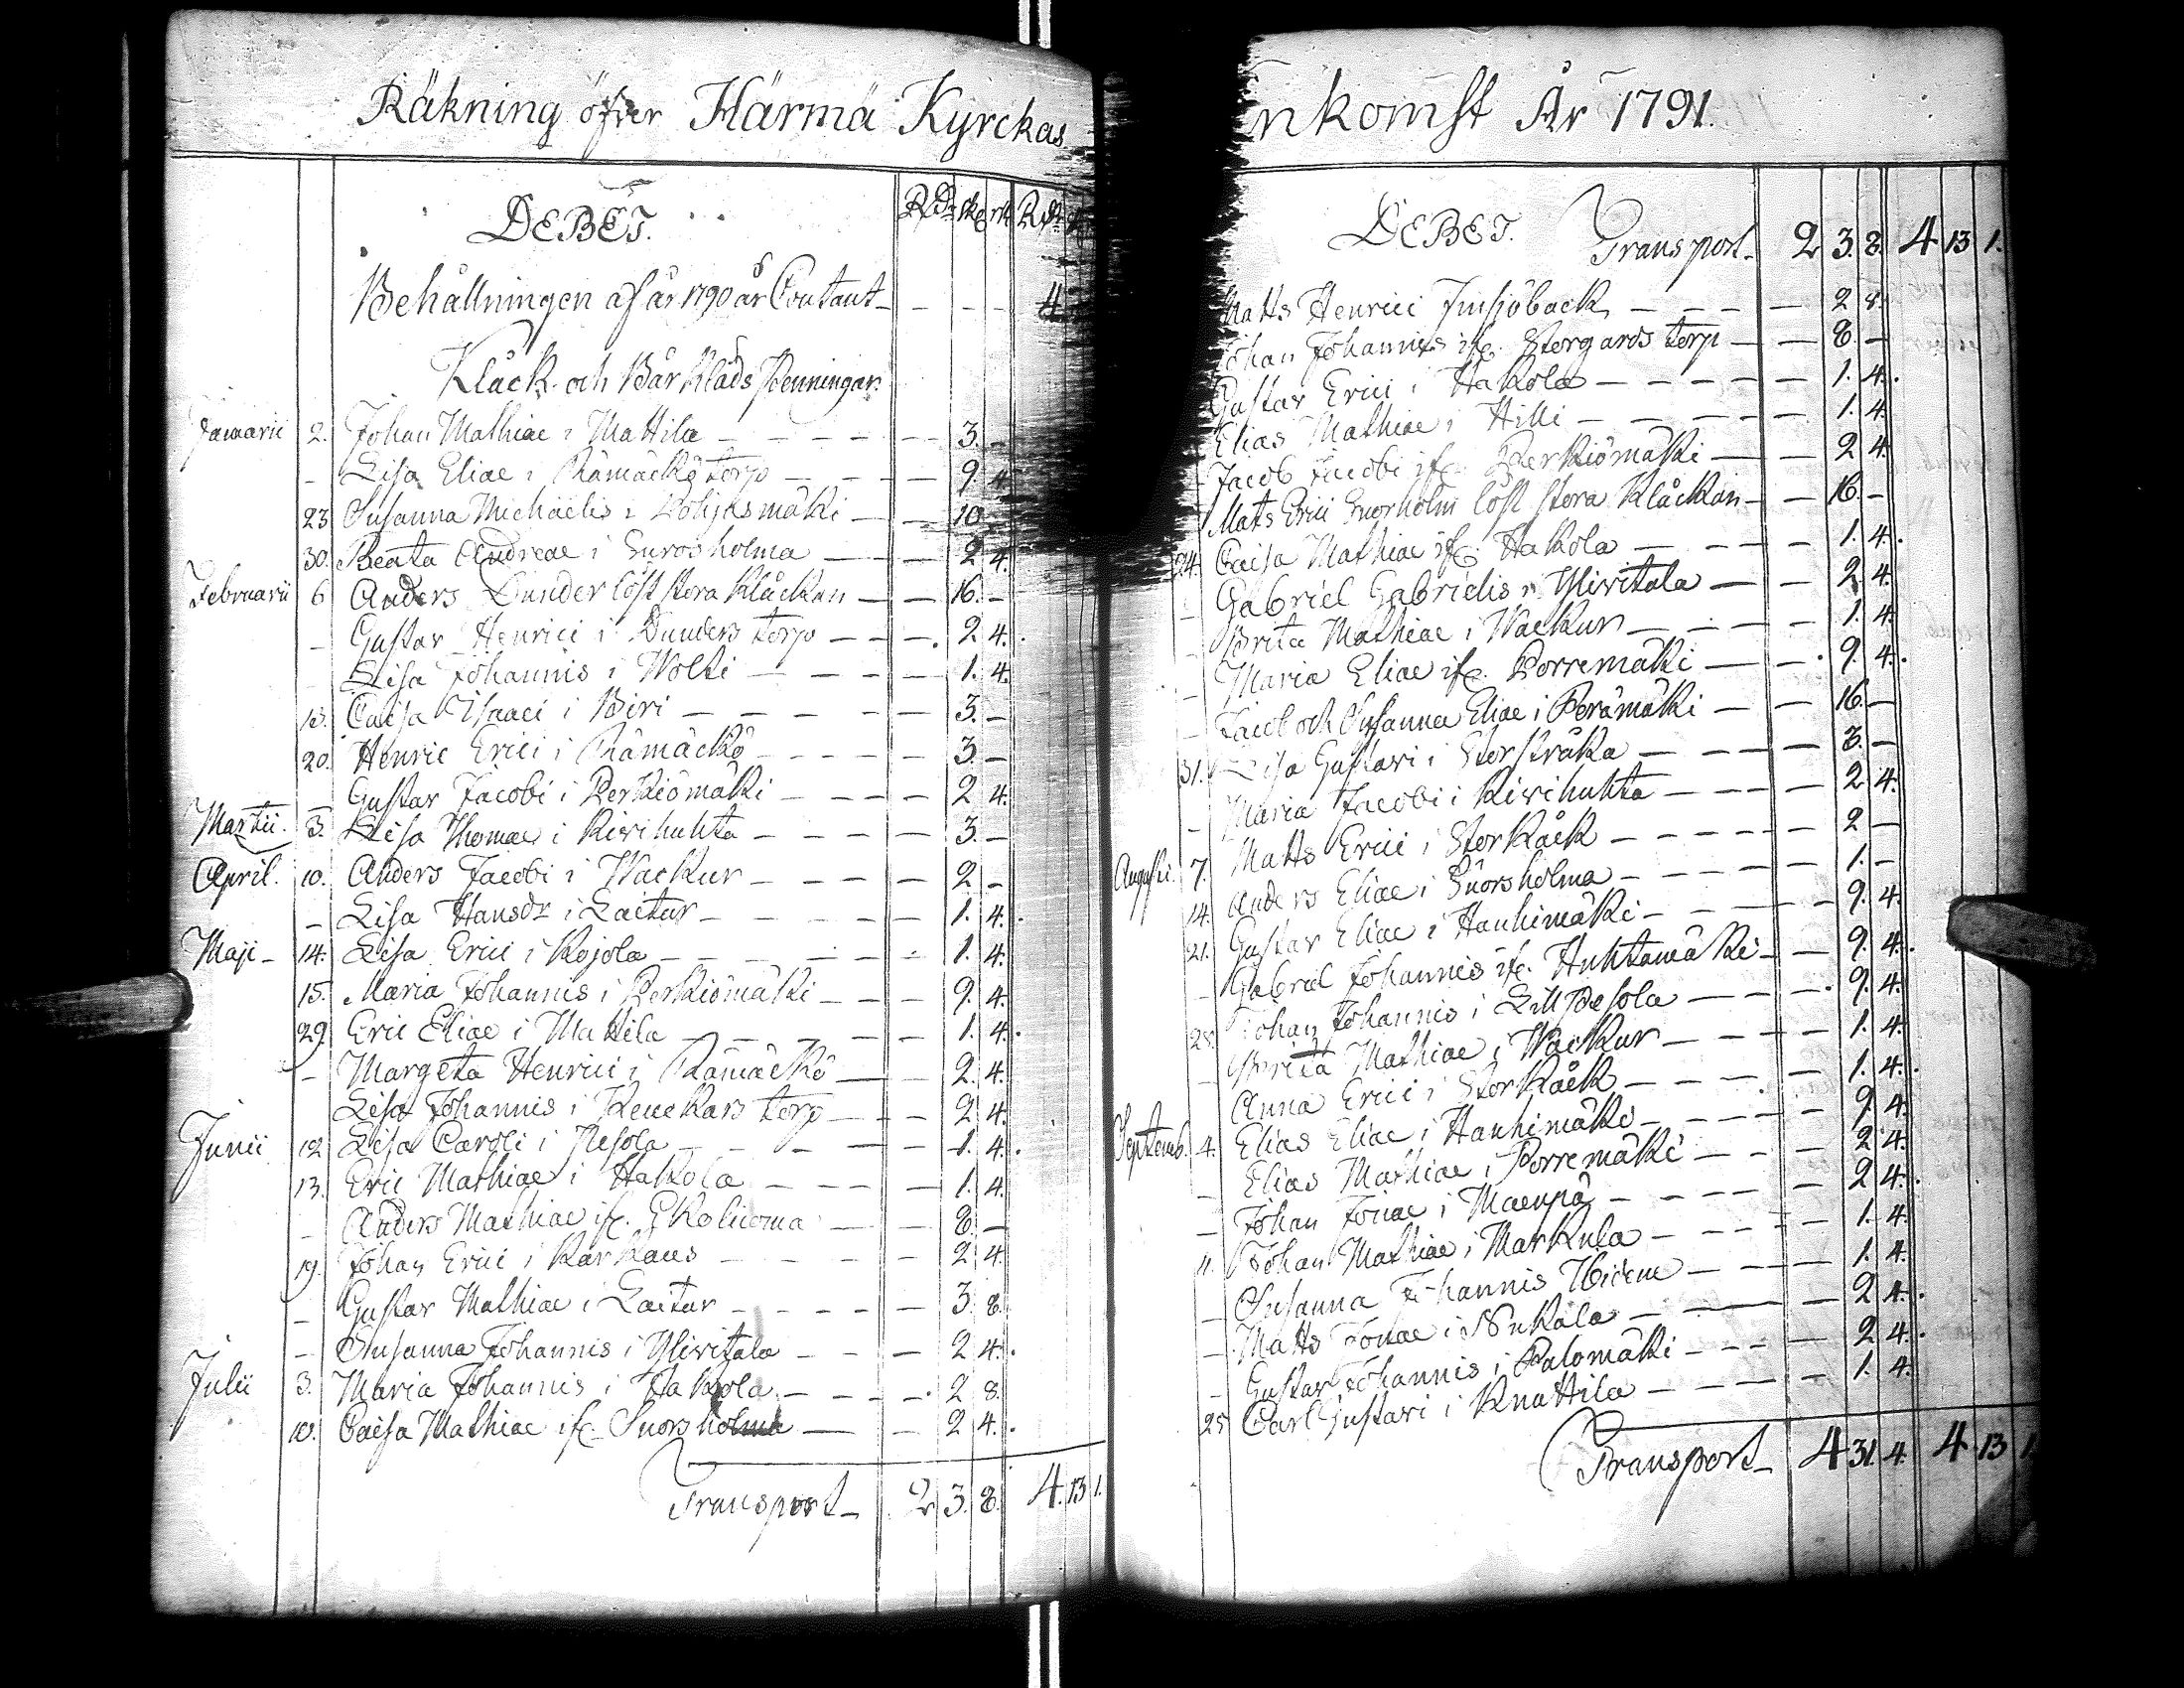 Räkning öfver Härmä Kyrckas
DEBET. RDr sk. rst. RDr
Behållningen af år 1790 är Contant - - - - 4
Klåck- och Bårklåds Penningar.
Januarii 2. Johan Mathiae i Mattila - - - - 3. -
- Lisa Eliae i Rämäckö torp - - - 9. 4.
23 Susanna Michaëlis i Pohjasmäki - - 10. -
30. Beata Andreae i Suorsholma - - 2 4.
Februarii 6 Anders Dunder löst stora Klåckan - - 16. -
- Gustav Henrici i Dunders torp - - - 2 4.
Lisa Johannis i Wolti - - - - 1. 4.
13. Caisa Isaaci i Biri - - - - - 3. -
20. Henric Erici i Rämäckö - - - - - 3. -
Gustav Jacobi i Perkiömäki - - - - 2 4.
Martii. 3. Lisa Thomae i Kivihuhta - - - - 3. -
April. 10. Anders Jacobi i Wackur - - - - 2 -
- Lisa Hansdr i Laitur - - - - - 1. 4.
Maji - 14. Lisa Erici i Kojola - - - - - 1. 4.
15. Maria Johannis i Perkiömäki - - - 9. 4.
29 Eric Eliae i Mattila - - - - - 1. 4.
- Margeta Henrici i Rämäckö - - 2. 4.
Lisa Johannis i Renckars torp - - 2 4.
Junii 12 Lisa Caroli i Pesola - - - - 1. 4.
13. Eric Mathiae i Hakola - - - - 1. 4.
- Anders Mathiae ifr. Ekoluoma - - 8. -
19. Johan Erici i Karhaus - - - - 2 4.
- Gustav Mathiae i Laitur - - - - - 3. 8.
- Susanna Johannis i Ylivitala - - - 2 4.
Julii 3. Maria Johannis i Hakola - - - - 2 8.
10. Caisa Mathiae ifr. Suorsholma - - 2 4.
Transport - 2 3. 8. 4. 13 1.
nkomst År 1791.
DEBET. Transport - 2 3. 8. 4 13 1.
Matts Henrici Insjöback - - - - 2 8.
Johan Johannis ifr. Storgårds torp - - 8. -
Gustav Erici i Hakola - - - - - 1. 4.
Elias Mathiae i Hilli - - - - - 1. 4.
Jacob Jacobi ifr. Perkiömäki - - 2 4.
Mats Erici Suorholm löst stora Klåckan - - 16. -
24. Caisa Mathiae ifr. Hakola - - - - 1. 4.
- Gabriel Gabrielis i Ylivitala - - 2 4.
- Brita Mathiae i Wackur - - - - 1. 4.
- Maria Eliae ifr. Porremäki - - 9. 4.
- Jacob och Susanna Eliae i Perämäki - - 16. -
31. Lisa Gustavi i Storstråka - - - - 3. -
- Maria Jacobi i Kivihuhta - - - - 2 4.
Augusti. 7. Matts Erici i Storkåck - - - - - 2 -
14. Anders Eliae i Suorsholma - - - - 1. -
21. Gustav Eliae i Hanhimäki - - - - 9. 4.
- Gabriel Johannis ifr. Huhtamäki - - 9. 4.
28. Johan Johannis i Lill Pesola - - - 9. 4.
- Brita Mathiae i Wackur - - - - 1. 4.
Anna Erici i Storkåck - - - - - 1. 4.
Septemb. 4. Elias Eliae i Hanhimäki - - - - 9. 4.
- Elias Mathiae i Porremäki - - - 2 4.
- Johan Jonae i Maenpä - - - - - 2 4.
11. Johan Mathiae i Markula - - - - 1. 4.
- Susanna Johannis Ibidem - - - 1. 4.
- Matts Jonae i Nukala - - - 2 4.
- Gustav Johannis i Palomäki - - - - 2 4.
25 Carl Gustavi i Knuttila - - - - - 1. 4.
Transport - 4 31. 4. 4 13 1